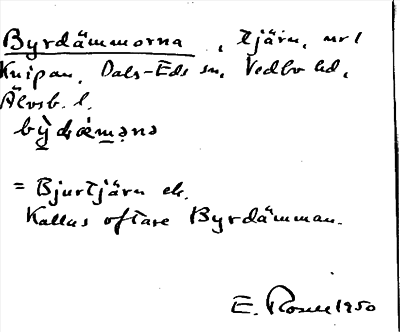 Byrdämmorna, tjärn, nr 1
Knipan, Dals-Eds sn, Vedbo hd,
Älvsb. l.
bỳdæ̀mənə
= Bjurtjärn ek.
Kallas oftare Byrdämman.
E. Rosell 1950